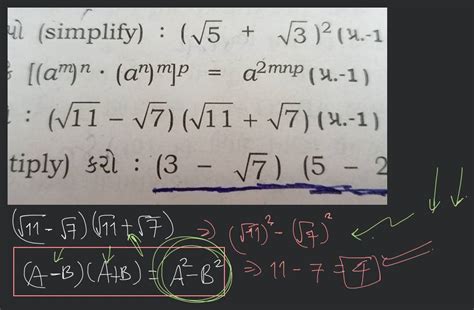 (simplify) : (√5 + √3)² (પ્ર.-1
[(aᵐ)ⁿ · (aⁿ)ᵐ]ᵖ = a²ᵐⁿᵖ (પ્ર.-1)
: (√11 − √7) (√11 + √7) (પ્ર.-1)
tiply) કરો : (3 − √7) (5 − 2
(√11 − √7)(√11 + √7) ⇒ (√11)² − (√7)²
(A − B)(A + B) = A² − B² ⇒ 11 − 7 = 4